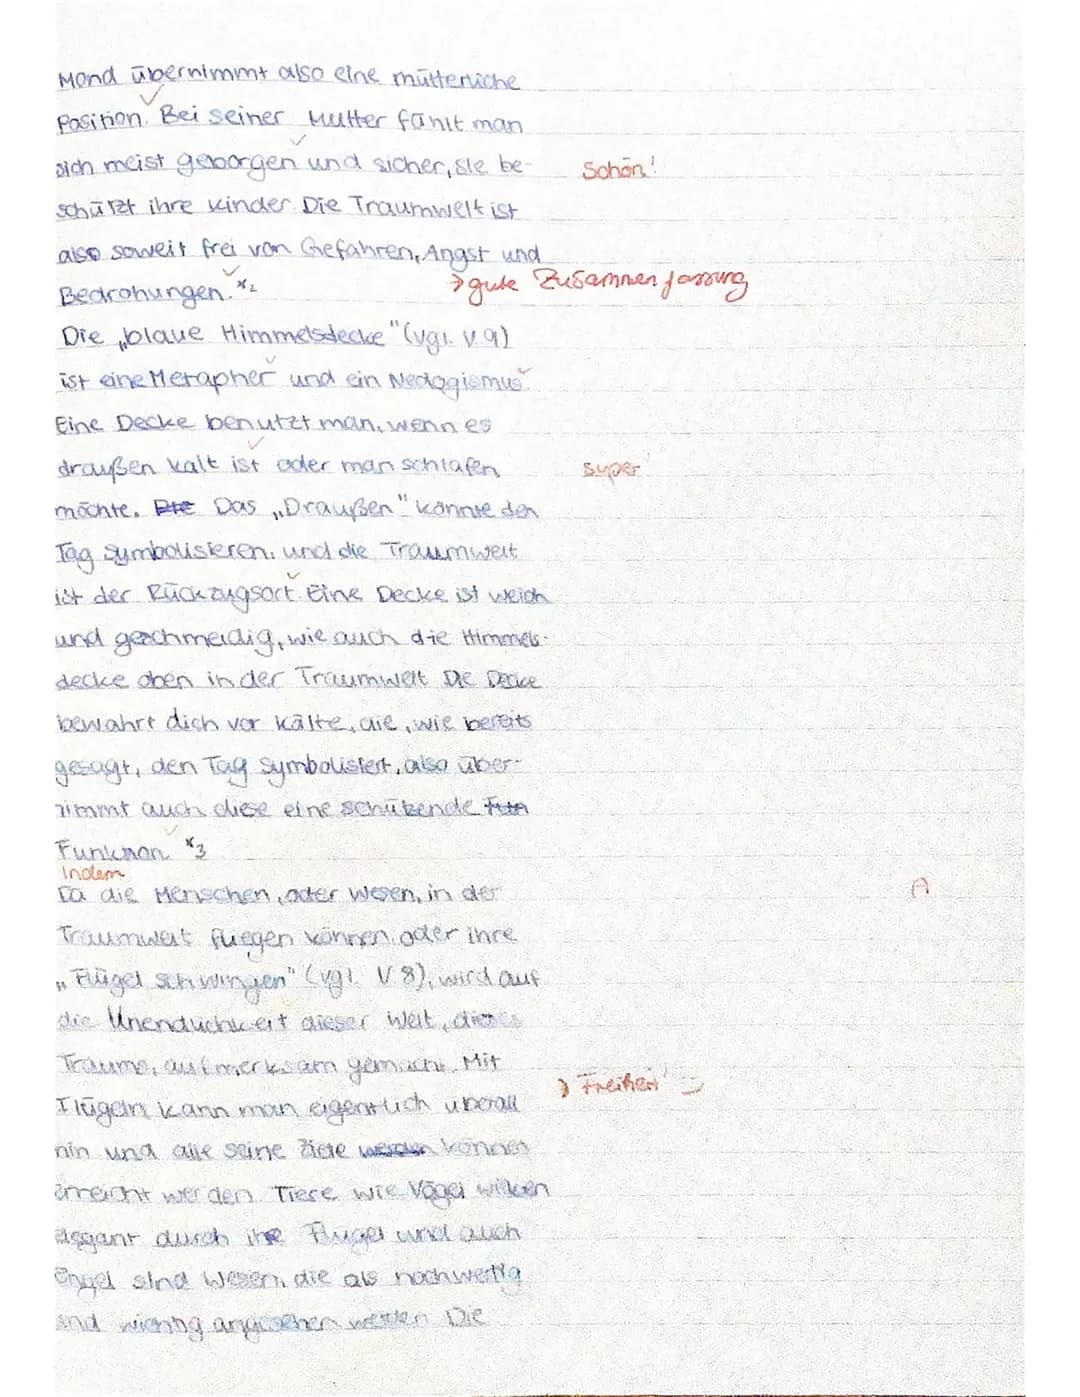 Mond übernimmt also eine mütterliche
Position. Bei seiner Mutter fühlt man
sich meist geborgen und sicher, sie be-
Schön!
schützt ihre Kinder. Die Traumwelt ist
also soweit frei von Gefahren, Angst und
Bedrohungen. *2
→ gute Zusammenfassung
Die „blaue Himmelsdecke" (vgl. V. 9)
ist eine Metapher und ein Neologismus.
Eine Decke benutzt man, wenn es
draußen kalt ist oder man schlafen
super
möchte. Die Das „Draußen" könnte den
Tag symbolisieren, und die Traumwelt
ist der Rückzugsort. Eine Decke ist weich
und geschmeidig, wie auch die Himmels-
decke oben in der Traumwelt. Die Decke
bewahrt dich vor Kälte, die, wie bereits
gesagt, den Tag symbolisiert, also über-
nimmt auch diese eine schützende Fun
Funktion. *3
Indem
Da die Menschen, oder Wesen, in der
A
Traumwelt fliegen können oder ihre
„Flügel schwingen" (vgl. V. 8), wird auf
die Unendlichkeit dieser Welt, dieses
Traums, aufmerksam gemacht. Mit
→ Freiheit!
Flügeln kann man eigentlich überall
hin und alle seine Ziele werden können
erreicht werden. Tiere wie Vögel wirken
elegant durch ihre Flügel und auch
Engel sind Wesen, die als hochwertig
und wichtig angesehen werden. Die